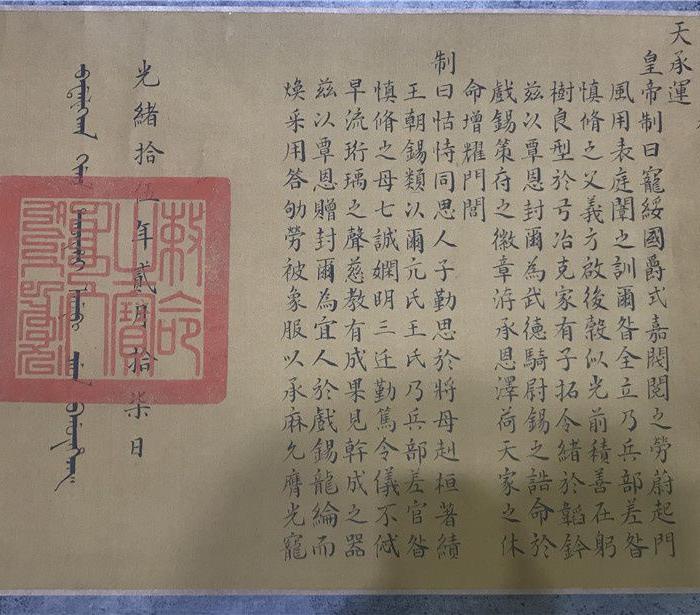 天承運
皇帝制曰寵綏國爵式嘉閥閱之勞蔚起門
風用表庭闈之訓爾昝全立乃兵部差昝
慎脩之父義方啟後穀似光前積善在躬
樹良型於弓冶克家有子拓令緒於韜鈐
茲以覃恩封爾為武德騎尉錫之誥命於
戲錫策府之徽章洊承恩澤荷天家之休
命增耀門閭
制曰怙恃同思人子勤思於將母赳桓著績
王朝錫類以爾亢氏王氏乃兵部差官昝
慎脩之母七誡嫻明三迁勤篤令儀不忒
早流珩瑀之聲慈教有成果見幹成之器
茲以覃恩贈封爾為宜人於戲錫龍綸而
煥采用答劬勞被象服以承庥允膺光寵
光緒拾伍年貳月拾柒日
敕命之寶